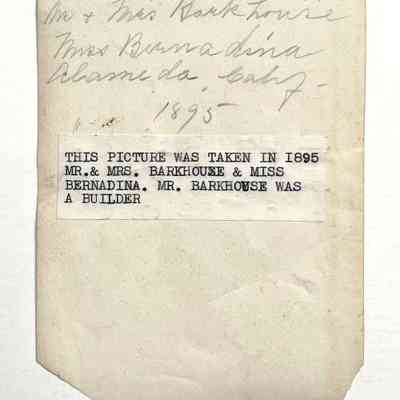 Mr & Mrs Barkhouse
Miss Bernadina
Alameda, Calif
1895
THIS PICTURE WAS TAKEN IN 1895
MR.& MRS. BARKHOUSE & MISS
BERNADINA. MR. BARKHOUSE WAS
A BUILDER